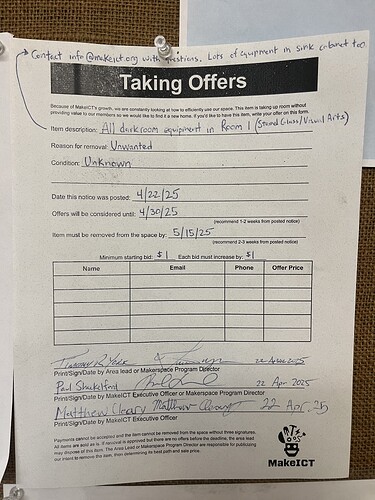 → Contact info@makeict.org with questions. Lots of equipment in sink cabinet too
Taking Offers
Because of MakeICT's growth, we are constantly looking at how to efficiently use our space. This item is taking up room without
providing value to our members so we would like to find it a new home. If you'd like to have this item, write your offer on this form.
Item description: All darkroom equipment in Room 1 (Stained Glass/Visual Arts)
Reason for removal: Unwanted
Condition: Unknown
Date this notice was posted: 4/22/25
Offers will be considered until: 4/30/25
(recommend 1-2 weeks from posted notice)
Item must be removed from the space by: 5/15/25
(recommend 2-3 weeks from posted notice)
Minimum starting bid: $1 Each bid must increase by: $1
Name Email Phone Offer Price
22 Apr 2025
Print/Sign/Date by Area lead or Makerspace Program Director
Paul Shackelford 22 Apr 2025
Print/Sign/Date by MakeICT Executive Officer or Makerspace Program Director
Matthew Cleary Matthew Cleary 22 Apr. 25
Print/Sign/Date by MakeICT Executive Officer
Payments cannot be accepted and the item cannot be removed from the space without three signatures.
All items are sold as is. If removal is approved but there are no offers before the deadline, the area lead
may dispose of this item. The Area Lead or Makerspace Program Director are responsible for publicizing
our intent to remove the item, then determining its best path and sale price.
MakeICT